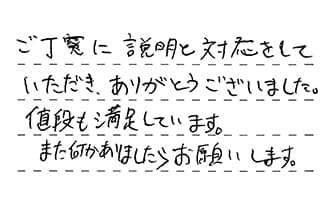 ご丁寧に説明と対応をして
いただき、ありがとうございました。
値段も満足しています。
また何かありましたらお願いします。